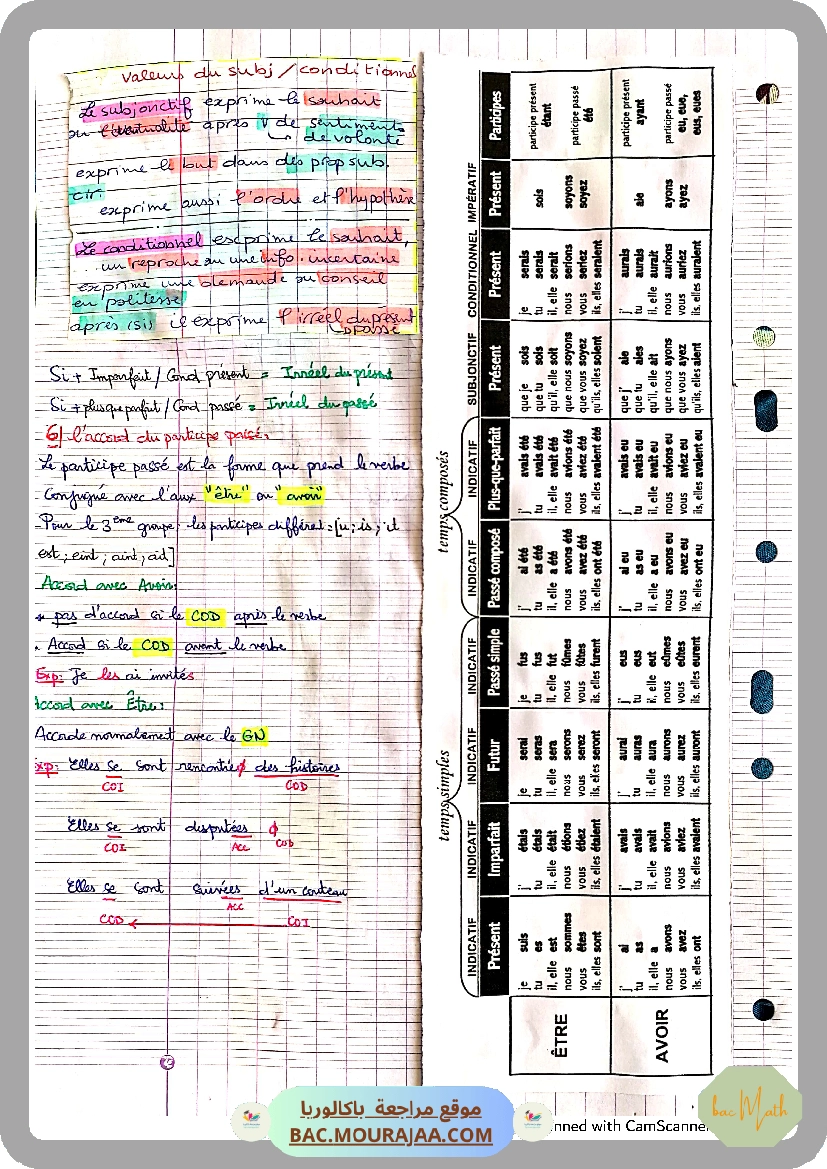 Valeurs du subj / conditionnel
Le subjonctif exprime le souhait
ou l'éventualité après V de sentiments
de volonté
exprime le but dans des prop sub.
cir.
exprime aussi l'ordre et l'hypothèse
Le conditionnel exprime le souhait,
un reproche ou une info. incertaine
exprime une demande ou conseil
en politesse
après (si) il exprime l'irréel du présent
passé
Si + Imparfait / Cond présent = Irréel du présent
Si + plus que parfait / Cond passé = Irréel du passé
6/ l'accord du participe passé.
Le participe passé est la forme que prend le verbe
Conjugué avec l'aux "être" ou "avoir"
Pour le 3ème groupe: les participes différent = [u; is; it
est; eint; aint; aid]
Accord avec Avoir:
* pas d'accord si le COD après le verbe
. Accord si le COD avant le verbe
Exp: Je les ai invités
Accord avec Être:
Accorde normalement avec le GN
Exp: Elles se sont rencontré∅ des histoires
COI COD
Elles se sont disputées ∅
COI Acc COD
Elles se sont suivies d'un couteau
ACC
COD COI
temps simples
temps composés
INDICATIF INDICATIF INDICATIF INDICATIF INDICATIF INDICATIF SUBJONCTIF CONDITIONNEL IMPÉRATIF
Présent Imparfait Futur Passé simple Passé composé Plus-que-parfait Présent Présent Présent Participes
ÊTRE
je suis j' étais je serai je fus j' ai été j' avais été que je sois je serais participe présent
tu es tu étais tu seras tu fus tu as été tu avais été que tu sois tu serais sois étant
il, elle est il, elle était il, elle sera il, elle fut il, elle a été il, elle avait été qu'il, elle soit il, elle serait
nous sommes nous étions nous serons nous fûmes nous avons été nous avions été que nous soyons nous serions soyons participe passé
vous êtes vous étiez vous serez vous fûtes vous avez été vous aviez été que vous soyez vous seriez soyez été
ils, elles sont ils, elles étaient ils, elles seront ils, elles furent ils, elles ont été ils, elles avaient été qu'ils, elles soient ils, elles seraient
AVOIR
j' ai j' avais j' aurai j' eus j' ai eu j' avais eu que j' aie j' aurais participe présent
tu as tu avais tu auras tu eus tu as eu tu avais eu que tu aies tu aurais aie ayant
il, elle a il, elle avait il, elle aura il, elle eut il, elle a eu il, elle avait eu qu'il, elle ait il, elle aurait
nous avons nous avions nous aurons nous eûmes nous avons eu nous avions eu que nous ayons nous aurions ayons participe passé
vous avez vous aviez vous aurez vous eûtes vous avez eu vous aviez eu que vous ayez vous auriez ayez eu, eue,
ils, elles ont ils, elles avaient ils, elles auront ils, elles eurent ils, elles ont eu ils, elles avaient eu qu'ils, elles aient ils, elles auraient eus, eues
موقع مراجعة باكالوريا
BAC.MOURAJAA.COM
nned with CamScanner
bac Math